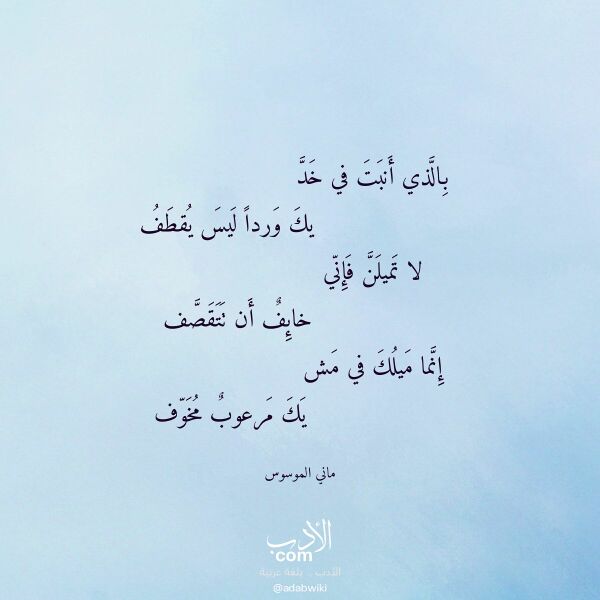 بِالَّذي أَنبَتَ في خَدَّ
يكَ وَرداً لَيسَ يُقطَفُ
لا تَميلَنَّ فَإِنّي
خائِفٌ أَن تَتَقَصَّف
إِنَّما مَيلُكَ في مَش
يَكَ مَرعوبٌ مُخَوّف
ماني الموسوس
الأدب
com
الأدب .. بلغة عربية
@adabwiki